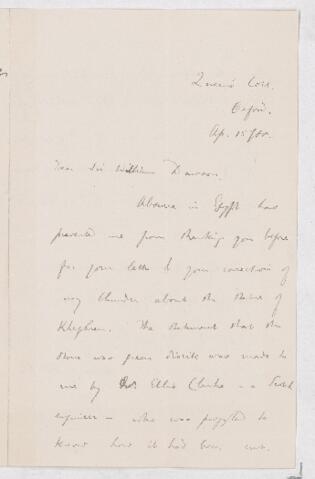 Queen's Coll.
Oxford.
Ap. 15/85.
Dear Sir William Dawson,
Absence in Egypt has
prevented me from thanking you before
for your letter & your correction of
my blunder about the statue of
Khephren. The statement that the
stone was green diorite was made to
me by Ellis Clarke - a Scotch
engineer - who was puzzled to
know how it had been cut.